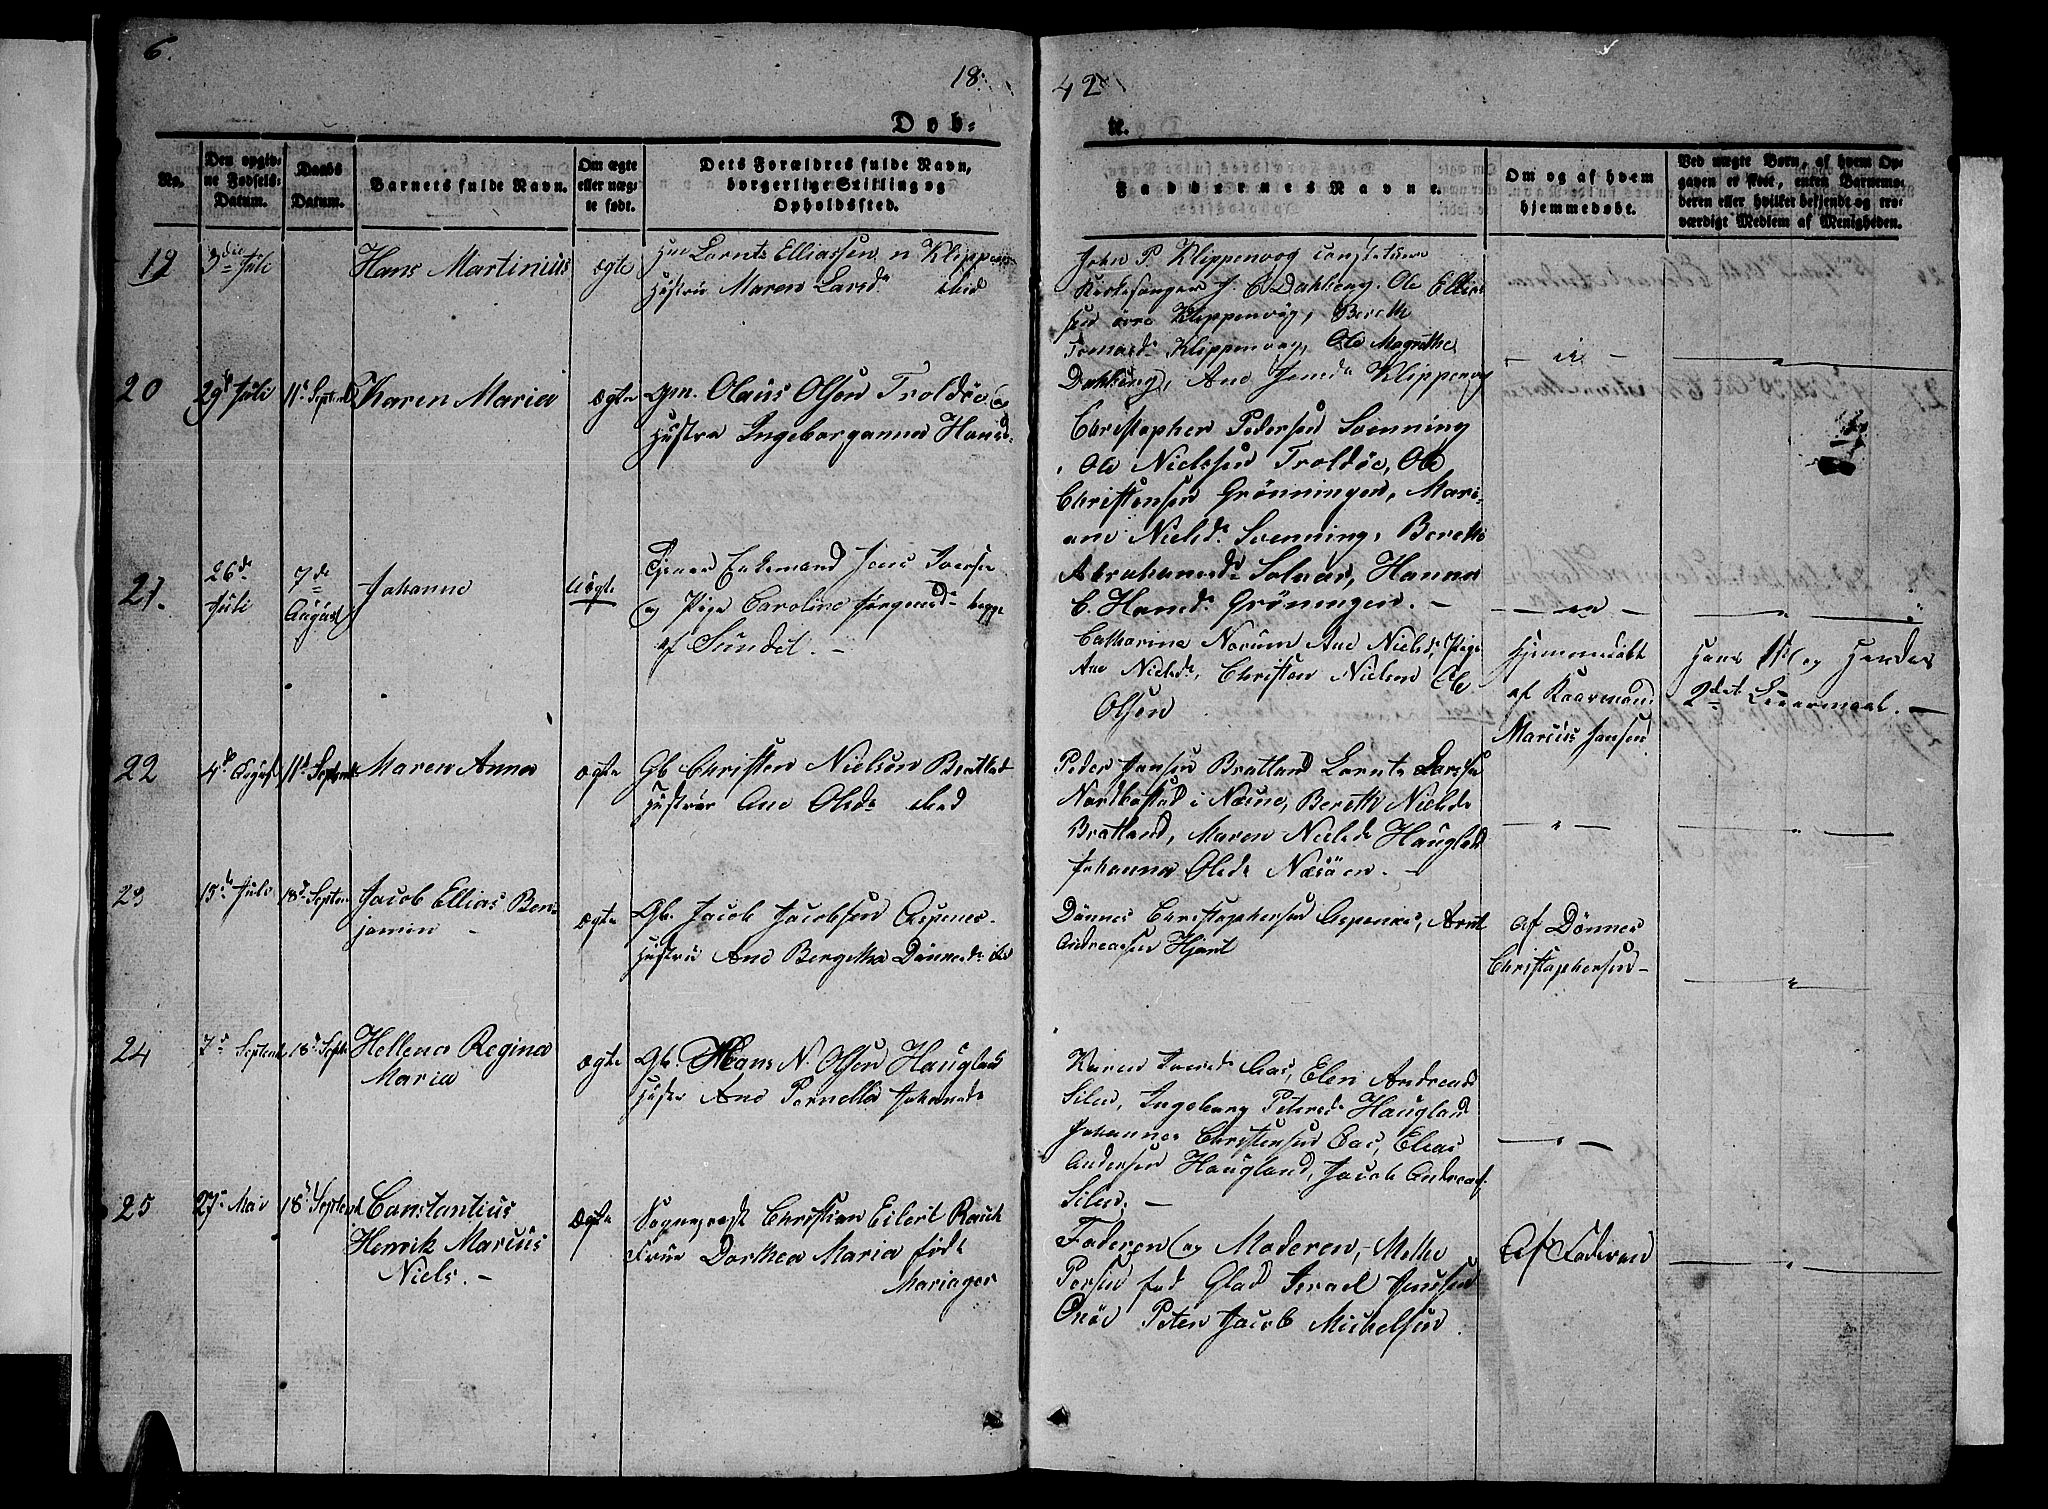 6.
18
42
Døb=
te.
No.
Den opgiv=
ne Fødsels=
Datum.
Daabs
Datum.
Barnets fulde Navn.
Om ægte
eller uæg=
te født.
Dets Forældres fulde Navn,
borgerlige Stilling og
Opholdssted.
Faddernes Navne.
Om og af hvem
hjemmedøbt.
Ved uægte Børn, af hvem Op=
gaven er skeet, enten Barnemo=
deren eller hvilket bekjendt og tro=
værdigt Medlem af Menigheden.
19
3die Juli
Hans Martinius
ægte
Lornts Elliassen
Hustrue Maren Larsd
John P Klippenvog
Kirkesanger J. C Dahlberg. Ole Ellias
sen øvre Klippenvog, Bereth
Klippenvog, Ole Magrethe
Dahlberg, Ane Klippenvog
20
29de Juli
11te Septembr
Karen Maria
ægte
Gm. Olaus Olsen Troldøe og
Hustru Ingeborganna Hansd.
Christopher Pedersen Svenning
Ole Nielssen Troldøe, Ole
Christensen Grønningen, Mari=
ane Nielsd. Svenning, Bereth
Abrahamsd. Solvær, Hanna
C. Hansd. Grøningen. —
21.
26de
Juli
7de
August
Johanne
Uægte
Enkemand Jens Iversen
og Pige Caroline Jørgensd. begge
af Sundet. —
Catharine Norum Ane Nielsd. Pige
Ane Nielsd., Christen Nielsen Ole
Olsen
Hjemmedøbt
af Kaarmand
Marcus Jansen
Hans 1ste og Hendes
2det Leiermaal. —
22
4de August
11te Septembr
Maren Anna
ægte
Gb Christen Nielsen Bratland
Hustrue Ane Olsdr ibid
Peder Jansen Bratland Lornts Larssen
i Næsne, Bereth Nielsdr
Bratland, Maren Nielsdr Haugland
Johanna Olsdr Næsøen. —
23
15de Juli
18de Septem
Jacob Ellias Ben=
jamin —
ægte
Gb. Jacob Jacobsen Aspenes.
Hustrue Ane Bergetha Dønnesdr ibd
Dønnes Christophersen Aspenes, Arnt
Andreassen Hjart
Af Dønnes
Christophersen —
24
7de Septembr
18de Septbr
Hellena Regina
Maria
ægte
Gb. Hans N. Olsen Haugland
Hustru Ane Pernella Johansdr
Karen Iversdr Aas, Elen Andreasd
Silen, Ingeborg Petersdr Haugland
Johannes Christensen Aas, Elias
Andersen Haugland, Jacob Andreas.
Silen. —
25
27de Mai
18de Septembr
Constantius
Henrik Marcus
Niels. —
ægte
Sognepræst Christian Eilert Rasch
Frue Dorthea Maria født
Mariager
Faderen og Moderen, — Mette
Persen fød Glad Israel Jenssen
Onøe Peter Jacob Michelsen.
Af Faderen